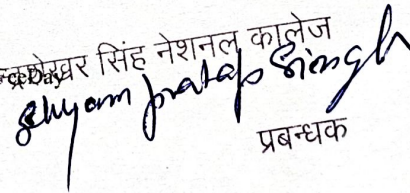 सिंह नेशनल कालेज
Shyam pratap Singh
प्रबन्धक